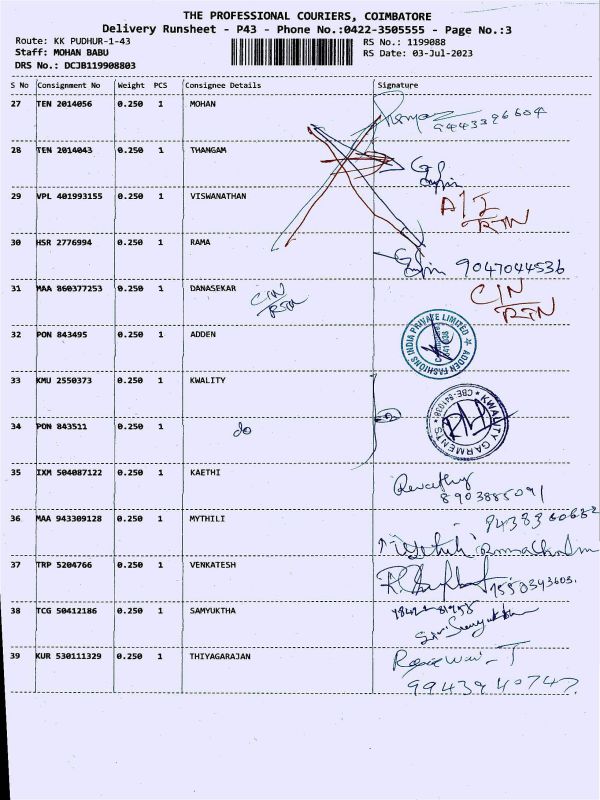 THE PROFESSIONAL COURIERS, COIMBATORE
Delivery Runsheet - P43 - Phone No.:0422-3505555 - Page No.:3
Route: KK PUDHUR-1-43 RS No.: 1199088
Staff: MOHAN BABU RS Date: 03-Jul-2023
DRS No.: DCJB119908803
S No Consignment No Weight PCS Consignee Details Signature
27 TEN 2014056 0.250 1 MOHAN
28 TEN 2014043 0.250 1 THANGAM
29 VPL 401993155 0.250 1 VISWANATHAN
RTN
30 HSR 2776994 0.250 1 RAMA
9047044536
31 MAA 860377253 0.250 1 DANASEKAR C/N C/N
RTN RTN
32 PON 843495 0.250 1 ADDEN ADDEN FASHIONS INDIA PRIVATE LIMITED
33 KMU 2550373 0.250 1 KWALITY KWALITY GARMENTS CBE-641038
34 PON 843511 0.250 1 do
35 IXM 504087122 0.250 1 KAETHI Revathy
8903885091
36 MAA 943309128 0.250 1 MYTHILI
37 TRP 5204766 0.250 1 VENKATESH
38 TCG 50412186 0.250 1 SAMYUKTHA
39 KUR 530111329 0.250 1 THIYAGARAJAN
9943940747